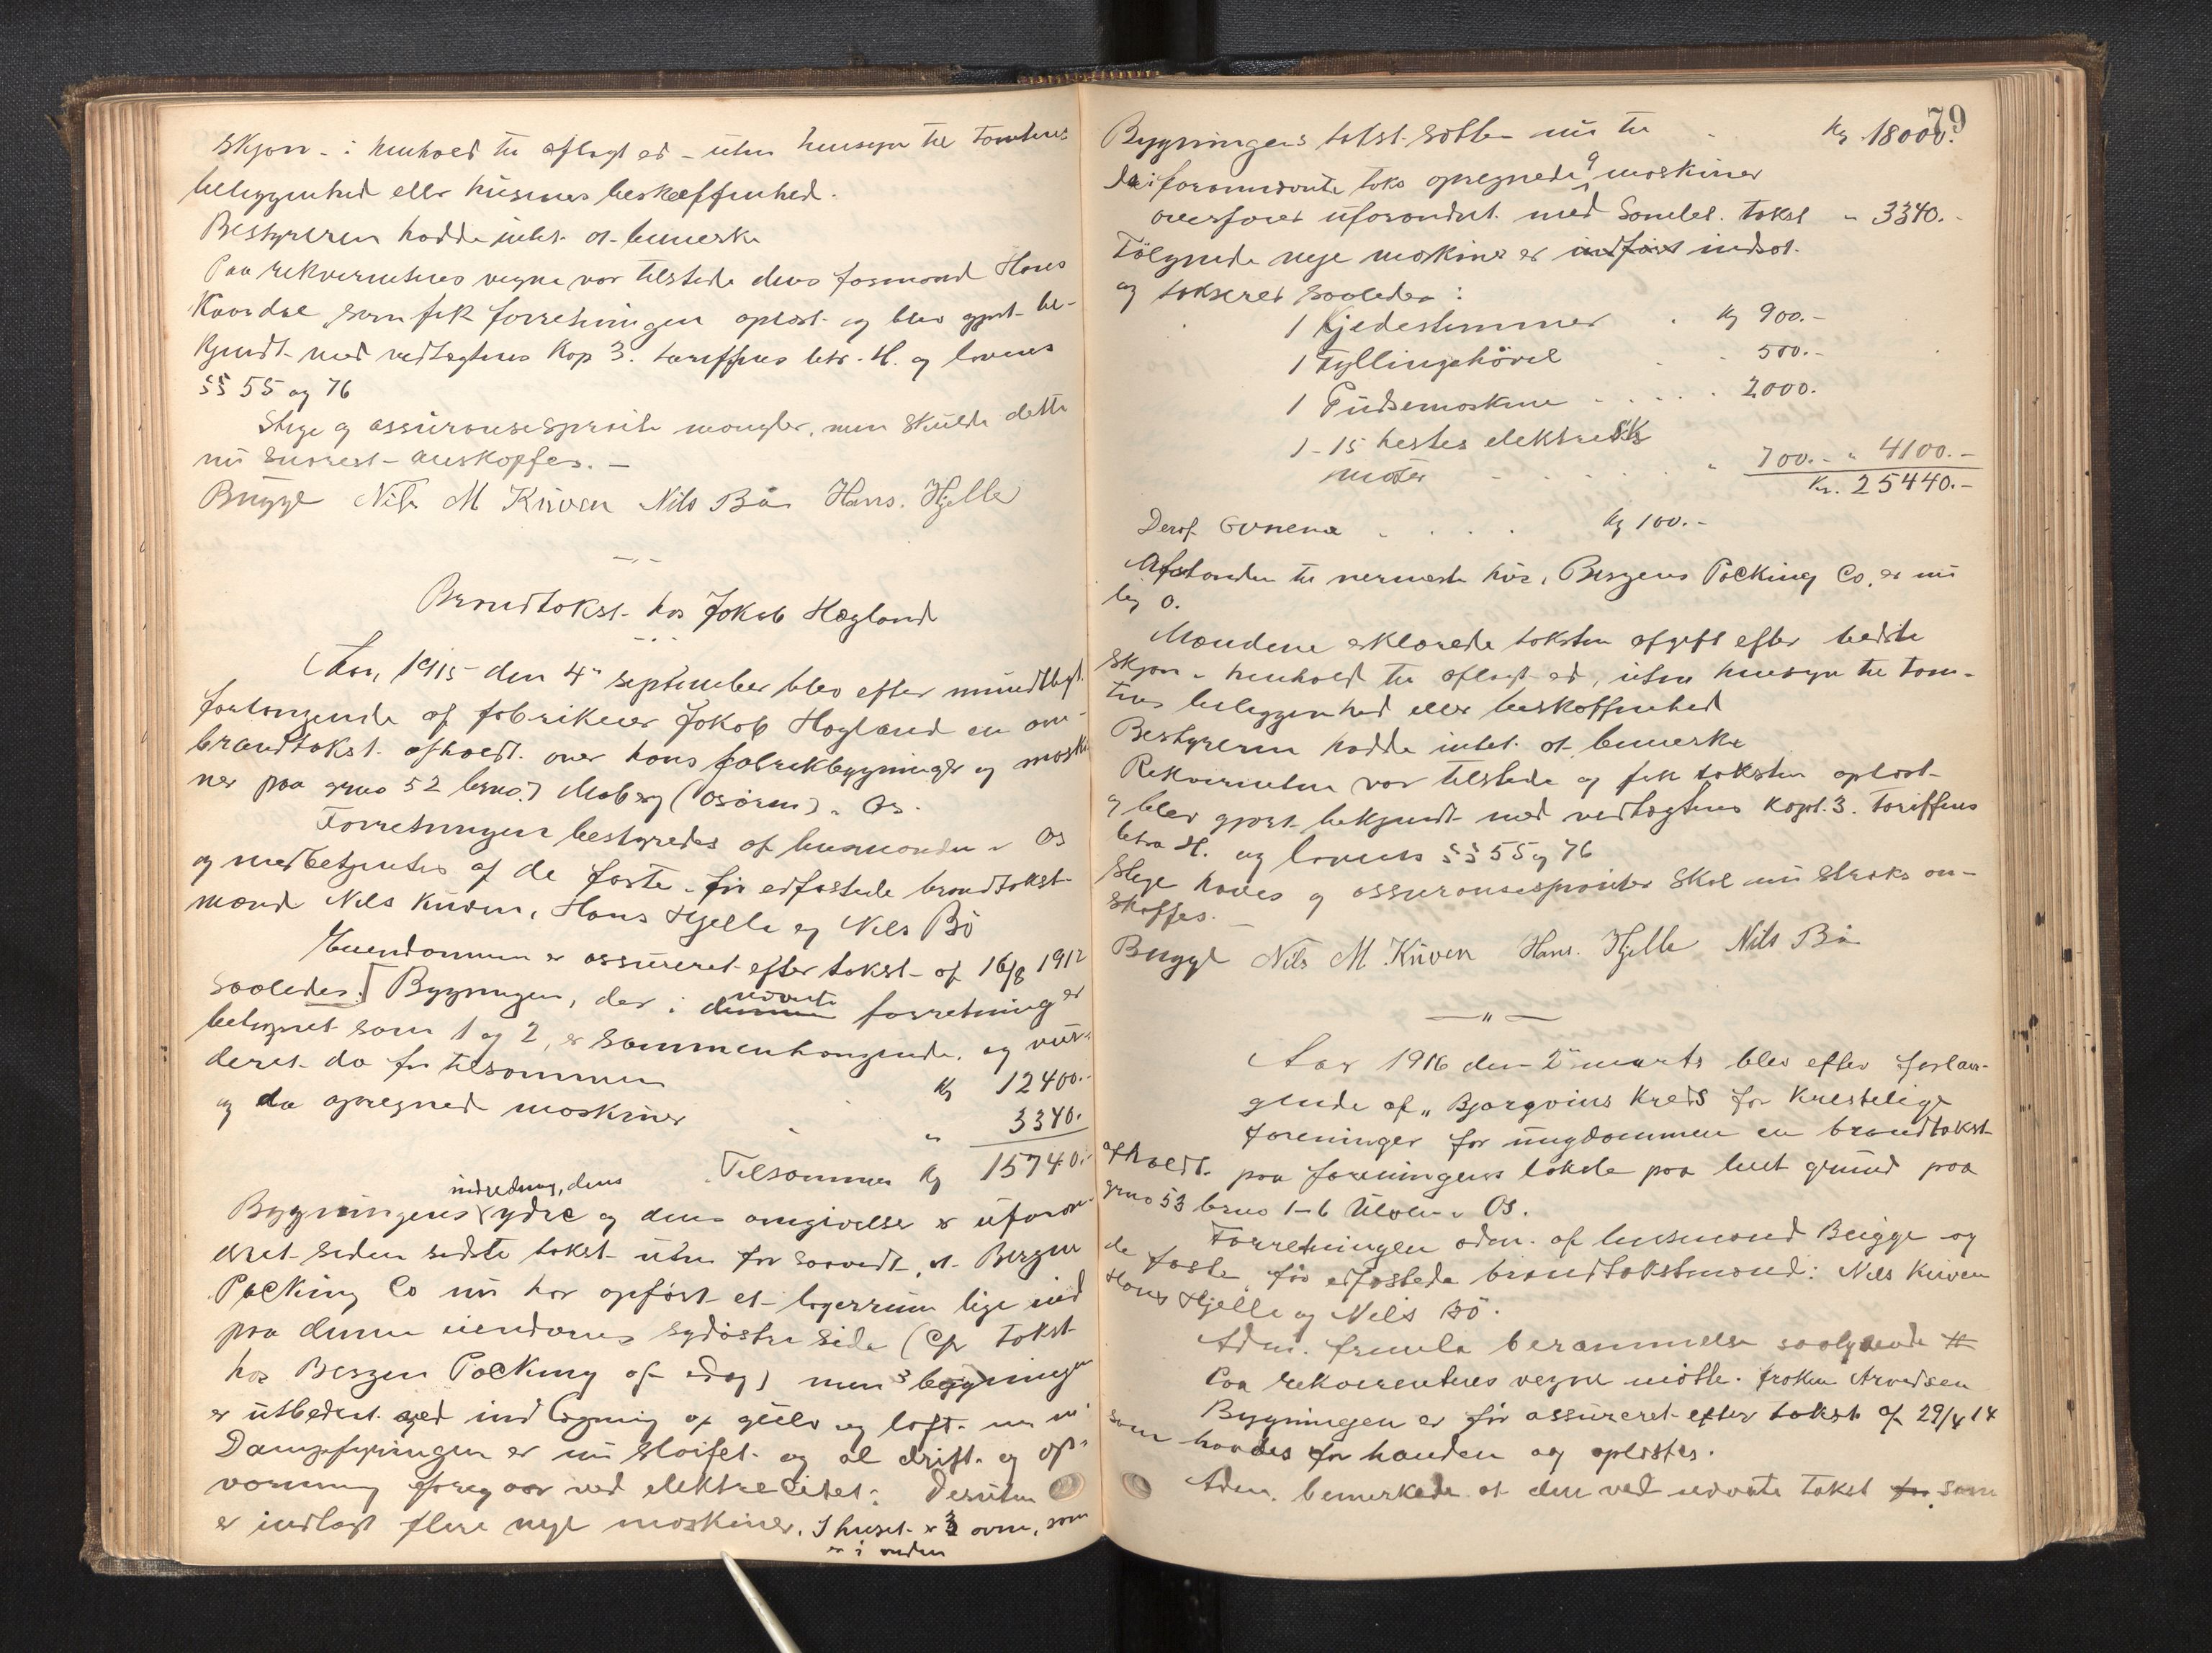 skjøn i henhold til aflagt ed – uten hensyn til tomtenes
beliggenhed eller husenes beskaffenhed.
Bestyreren hadde intet at bemerke
Paa rekvirentenes vegne var tilstede dens formand Hans
Kvordal som fik forretningen oplæst og blev gjort be-
kjendt med vedtagtens Kap 3. tariffens litr. H. og lovens
§§ 55 og 76
Stige og assuransesprøite mangler, men skulde dette
nu snarest anskaffes. –
Bugge Nils M Kuven Nils Bø Hans. Hjelle
Brandtakst hos Jakob Hægland
Aar, 1915 den 4de september blev efter mundtlig
forlangende af fabrikeier Jakob Hægland en om-
brandtakst afholdt over hans fabrikbygninger og maski-
ner paa grno 52 brno 7 Moberg (Osøren) i Os.
Forretningen bestyredes af lensmanden i Os
og medbetjentes af de faste før edfæstede brandtakst-
mænd Nils Kuven, Hans Hjelle og Nils Bø
Eiendommen er assureret efter takst af 16/8 1912
saaledes: Bygningen, der i denne nævnte forretning er
betegnet som 1 og 2, er sammenhængende og vur-
deret da for tilsammen Kr 12400.-
og da opregned maskiner " 3340.
Tilsammen Kr 15740.-
indredning, dens
Bygningens ydre og dens omgivelser er uforan-
dret siden sidste takst uten for saavidt, at Bergen
Packing Co nu har opført et lagerrum lige ind
paa denne eiendoms sydøstre side (Cfr takst
hos Bergen Packing af idag) men bygningen
er utbedret ved indlægning af gulv og loft
Dampfyringen er nu sløifet og al drift og op-
varmning foregaar ved elektrecitet. Desuten
er indlagt flere nye maskiner. I huset er 3 ovne, som
er i orden
79
Bygningens takst sættes nu til Kr 18000.
De i forannævnte takst opregnede 9 maskiner
overføres uforandret med samlet takst " 3340.-
Følgende nye maskiner er indført indsat
og takseret saaledes:
1 Kjedestemmer Kr 900.-
1 Fyllingshøvel 500.-
1 Pudsemaskine 2000.
1 - 15 hestes elektrisk
motor " 700.- " 4100.-
Kr. 25440.-
Deraf ovnene Kr 100.-
Afstanden til nærmeste hus, Bergens Packing Co. er nu
lig 0.
Mændene erklærede taksten afgit efter bedste
skjøn i henhold til aflagt ed, uten hensyn til tom-
tens beliggenhed eller beskaffenhed
Bestyreren hadde intet at bemerke
Rekvirenten var tilstede og fik taksten oplæst
og blev gjort bekjendt med vedtagtens Kapt. 3. Tariffens
litra H. og lovens §§ 55 og 76
Stige haves og assuransesprøiter skal nu straks an-
skaffes.
Bugge Nils M. Kuven Hans. Hjelle Nils Bø
– " –
Aar 1916 den 2den marts blev efter forlan-
gende af „Bjørgvins Kreds for Kristelige
foreninger for ungdommen en brandtakst
afholdt paa foreningens lokale paa leiet grund paa
grno 53 brno 1-6 Ulven i Os.
Forretningen adm. af lensmand Bugge og
de faste, før edfæstede brandtakstmænd: Nils Kuven
Hans Hjelle og Nils Bø.
Adm. fremla berammelse saalydende #
Paa rekvirentens vegne møtte frøken Arvedsen
Bygningen er før assureret efter takst af 29/4 14
som havdes for haanden og oplæstes.
Adm. bemerkede at den ved nævnte takst for som